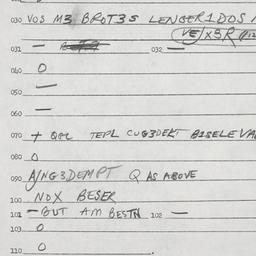 030 VOS M3 BROT3S LENGER1DOS
VE/X3R
031 — 032 —
040 O
050 —
060 —
070 + QBL TEPL CUG3DEKT BISELEVA
080 O
090 A/NG3DEMPT Q AS ABOVE
100 NOX BESER
101 — BUT AM BESTN 102 —
103 O
110 O